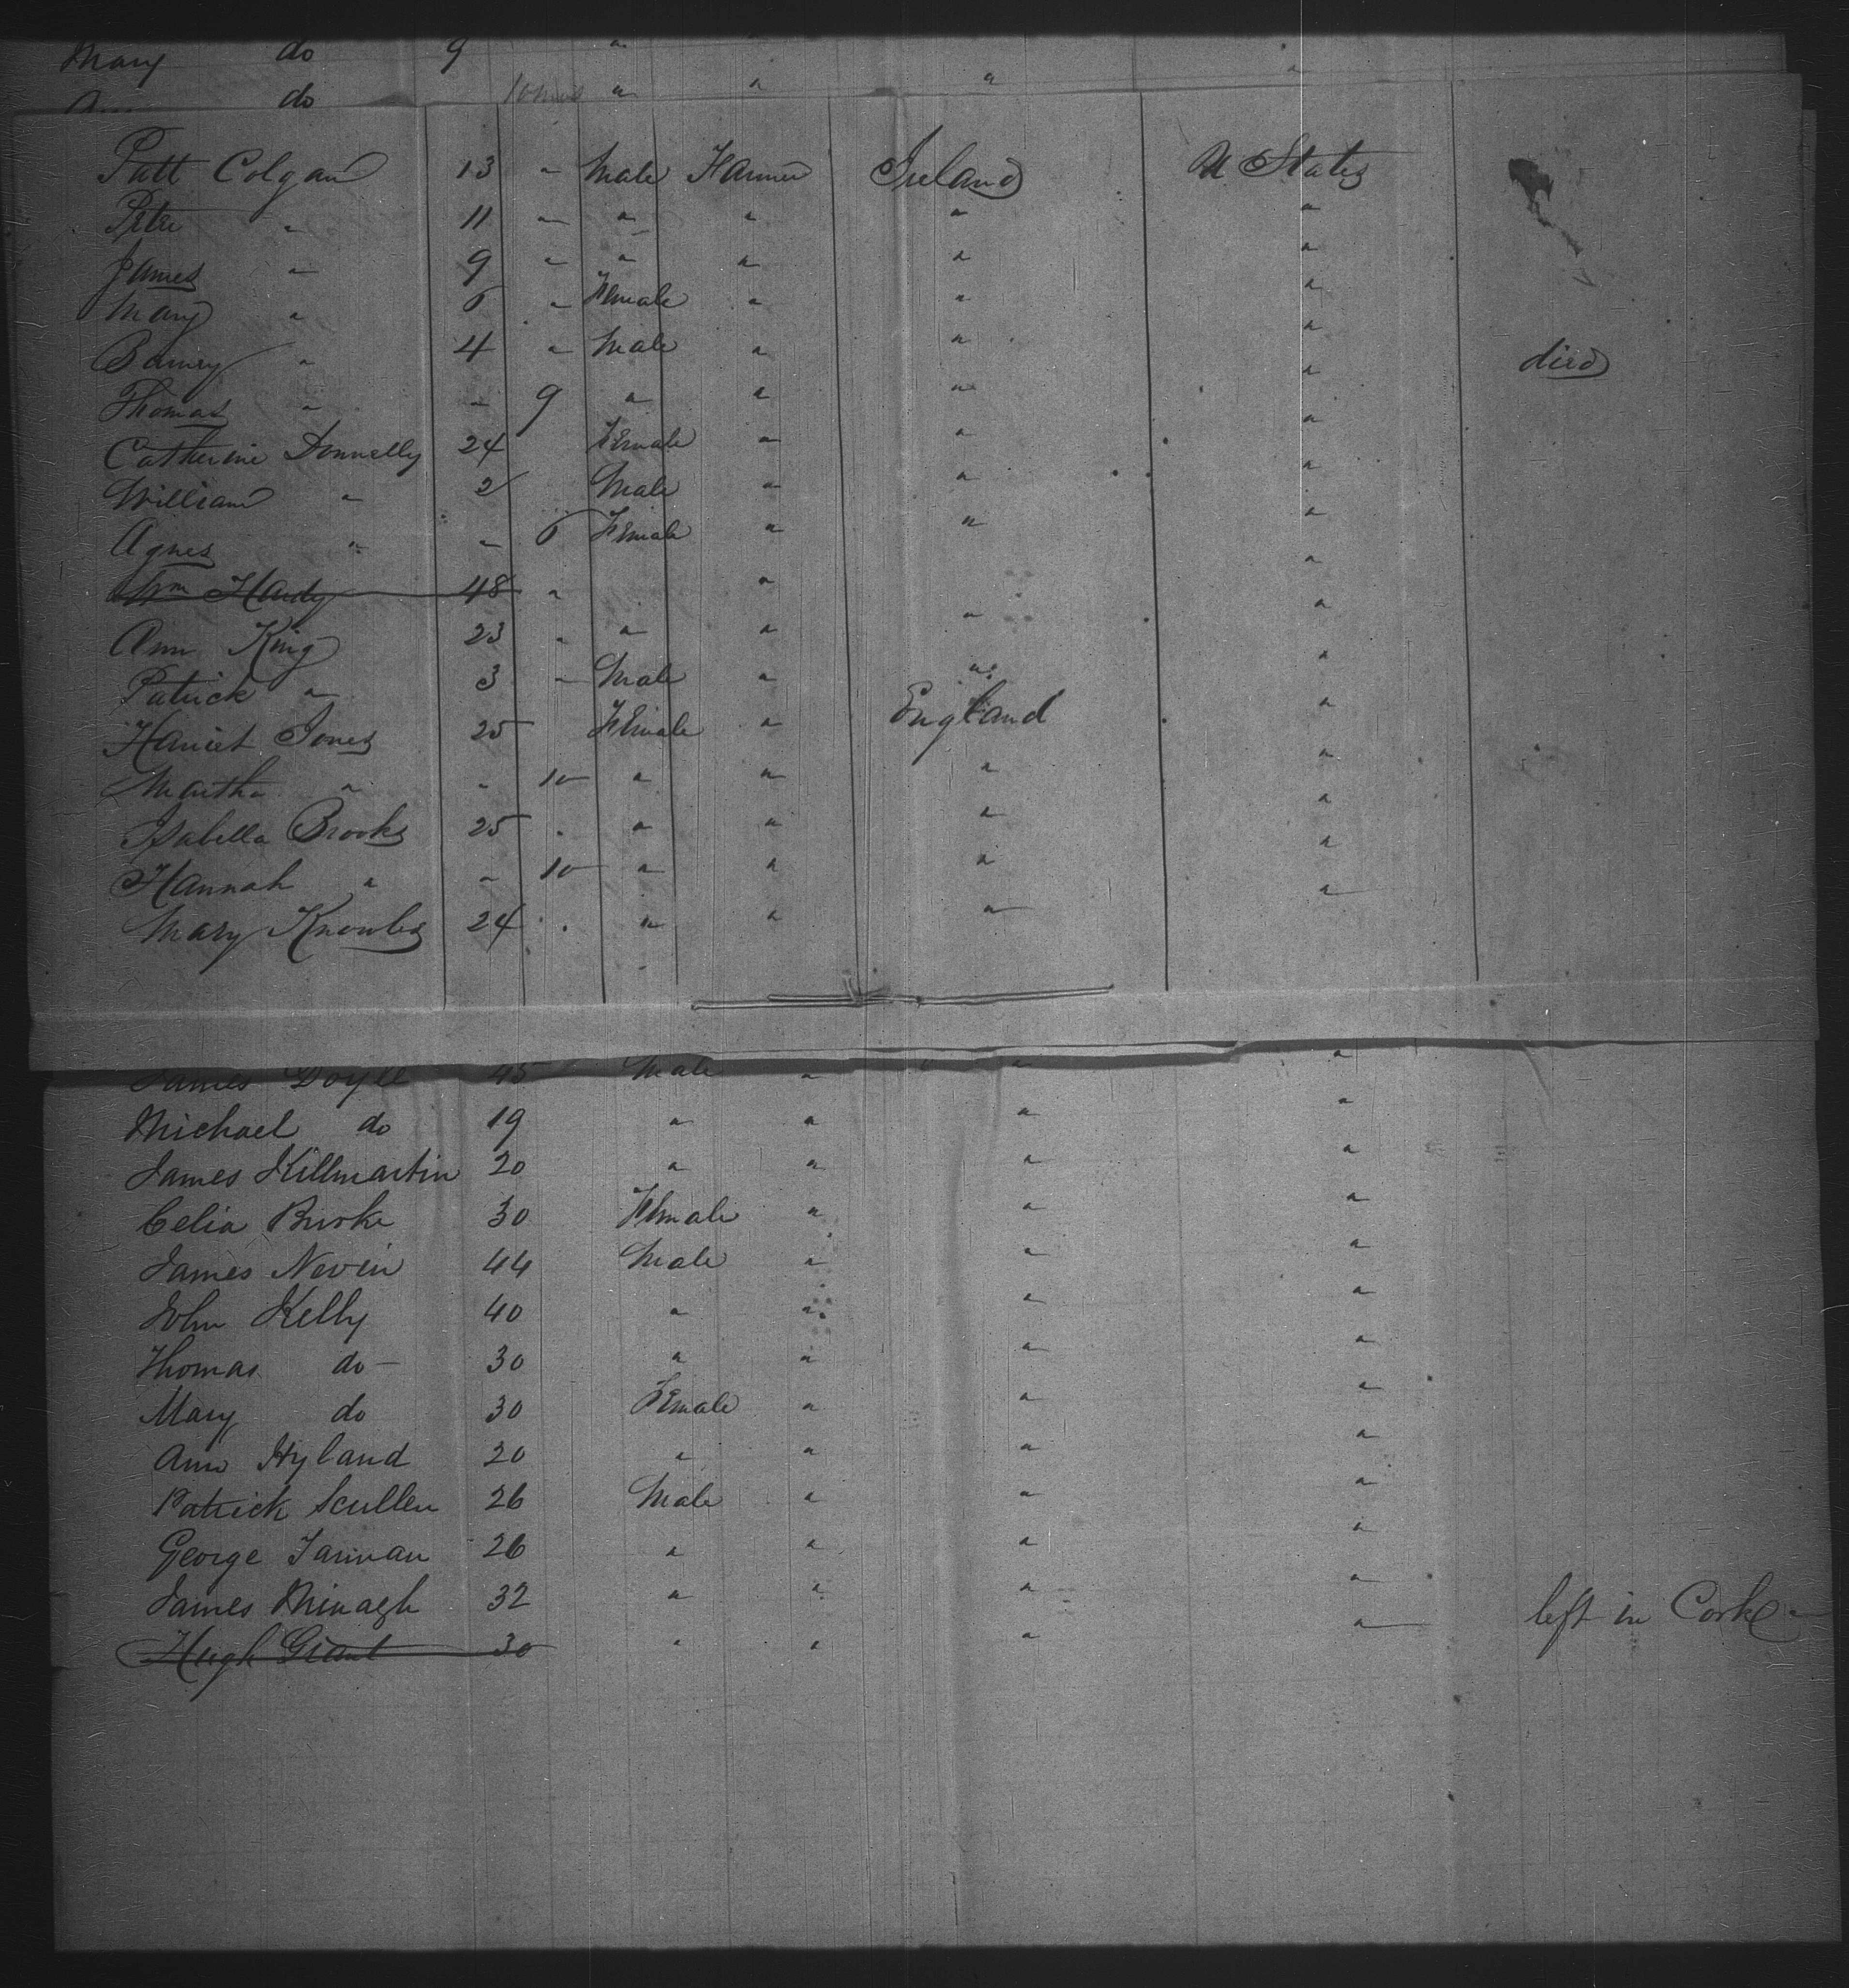 Mary do 9 " "
do 10 mos " " " "
Patt Colgan 13 " Male Farmer Ireland U States
Peter " 11 " " " " "
James " 9 " " " " "
Mary " 6 " Female " " "
Barney " 4 " Male " " " died
Thomas " " 9 " " " "
Catherine Donnelly 24 Female " " "
William " 2 Male " " "
Agnes " " 6 Female " " "
Wm Hardy 48 " " "
Ann King 23 " " " " "
Patrick " 3 " Male " " "
Harriet Jones 25 Female " England "
Martha " " 10 " " " "
Isabella Brooks 25 " " " " "
Hannah " " 10 " " " "
Mary Knowles 24 " " " " "
James Doyle 45 Male " " "
Michael do 19 " " " "
James Killmartin 20 " " " "
Celia Burke 30 Female " " "
James Nevin 44 Male " " "
John Kelly 40 " " " "
Thomas do 30 " " " "
Mary do 30 Female " " "
Ann Hyland 20 " " " "
Patrick Scullen 26 Male " " "
George 26 " " " "
James Minagh 32 " " " "
Hugh Grant 30 " " " " left in Cork